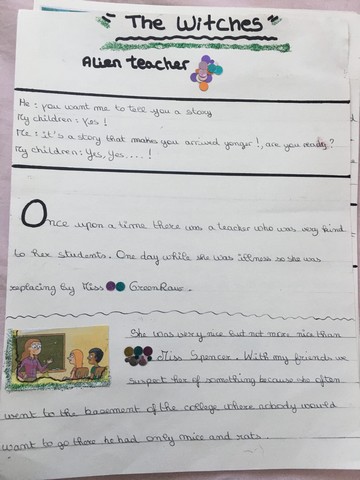 "The Witches"
Alien teacher
He : you want me to tell you a story
My children : Yes !
Me : it's a story that makes you arrived yonger !, are you ready ?
My children : Yes, Yes, ... !
Once upon a time there was a teacher who was very kind
to her students. One day while she was illness so she was
replacing by Miss GreenRave.
She was very nice but not more nice than
Miss Spencer. With my friends we
suspect her of something because she often
went to the basement of the college where nobody would
want to go there he had only mice and rats.